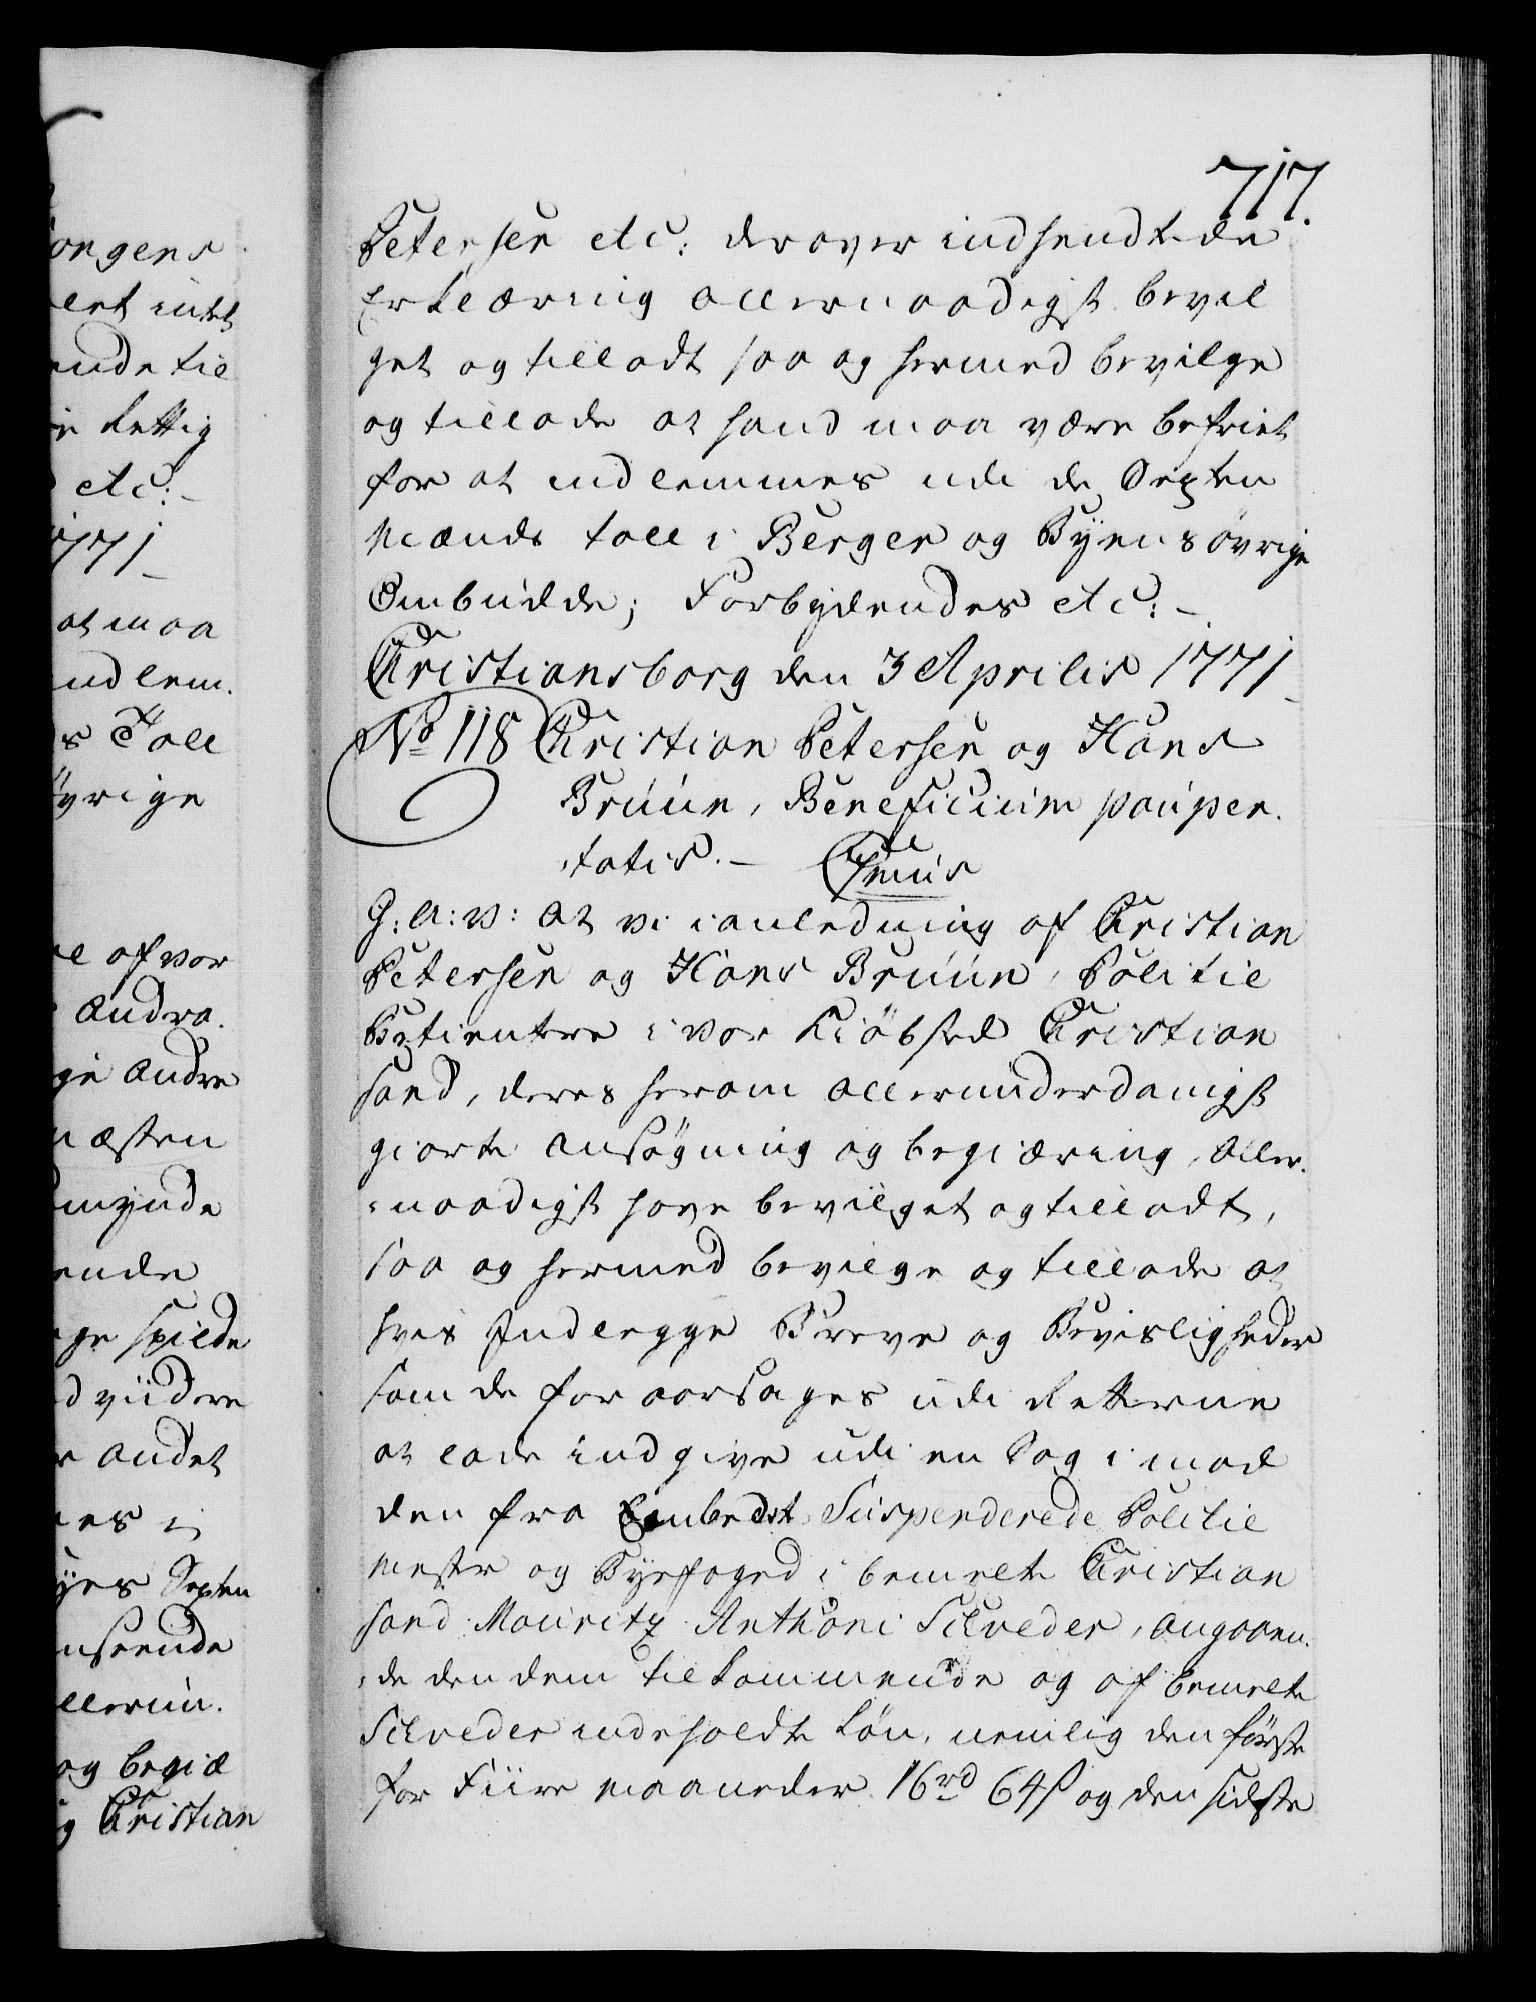 717.
Petersen etc: derover indsendtede
Erklæring allernaadigst bevil
get og tilladt saa og hermed bevilge
og tillade at hand maa være befriet
for at indlemmes udi de Sexten
Mænds tall i Bergen og Byens øvrige
Ombudde; Forbydendes etc: –
Christiansborg den 3 Aprilis 1771
No 118 Christian Petersen og Hans
Bruun, Beneficium pauper.
tatis. –
G: A: V: at vi i anledning af Christian
Petersen og Hans Bruun, Politie
Betientere i vor Kiöbsted Christian
sand, deres herom allerunderdanigst
giorte ansøgning og begiæring, aller.
naadigst have bevilget og tilladt,
saa og hermed bevilge og tillade at
hvis Indlegge Breve og Bevisligheder
som de foraarsages udi Retterne
at lade indgive udi en Sag imod
den fra Embedet Suspenderede Politie
mester og Byefoged i bemelte Christian
sand Mouritz Anthoni Schrøder, angaaen.
de den dem tilkommende og af bemelte
Schrøder indeholdte Løn, nemlig den første
for Fiire maaneder 16rd 64s og den sidste
ongens
lert intet
ende til
Rettig
etc: –
1771
at maa
indlem.
s Tall
øvrige
af vor
andra.
andre
næsten
ende
spilde
d viidere
andet
Sexten
anseende
llerun.
og begiæ
Christian